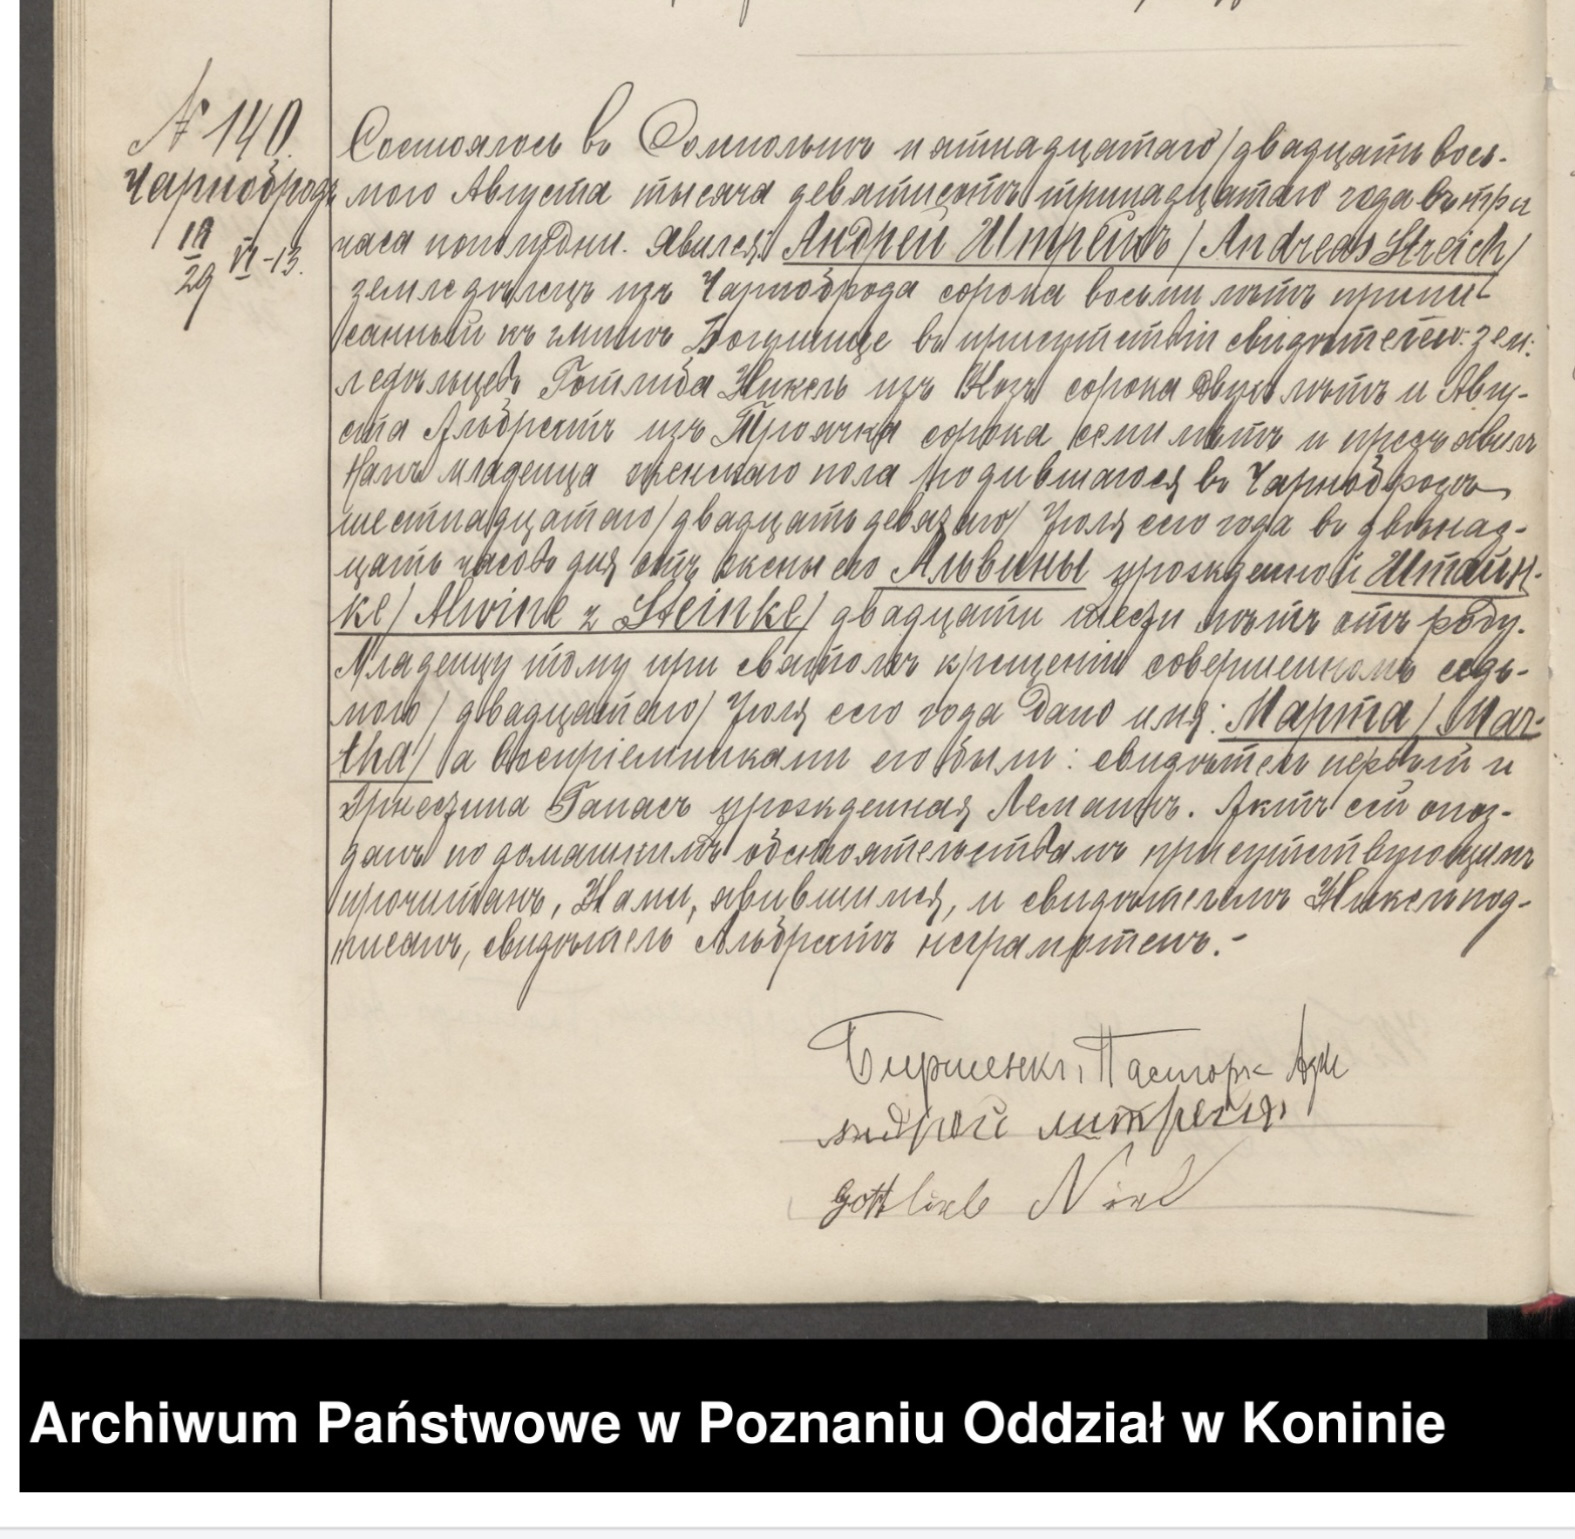 № 140.
Чарноброде
16
29 VI-13.
Состоялось въ Сомпольнѣ пятнадцатаго /двадцать вось-
мого Августа тысяча девятисотъ тринадцатаго года въ три
часа пополудни. Явился: Андрей Штрейхъ /Andreas Streich/
земледѣлецъ изъ Чарноброда сорока восьми лѣтъ припи-
санный къ гминѣ въ присутствіи свидѣтелей: зем:
ледѣльцевъ Готлиба Никель изъ сорока двухъ лѣтъ и Авгу-
ста Альбрехтъ изъ сорока семи лѣтъ и предъявилъ
Намъ младенца женскаго пола родившагося въ Чарнобродѣ
шестнадцатаго /двадцать девятаго/ Іюля сего года въ двѣнад-
цать часовъ дня отъ жены его Альвины урожденной Штайн-
ке/ Alwine z Steinke/ двадцати шести лѣтъ отъ роду.
Младенцу тому при святомъ крещеніи совершенномъ седь-
мого /двадцатаго/ Іюля сего года дано имя: Марта /Mar-
tha/ а воспріемниками его были: свидѣтель первый и
Эрнестина Ганасъ урожденная Лемашъ. Актъ сей опоз-
данъ по домашнимъ обстоятельствамъ присутствующимъ
прочитанъ, Нами, явившимся, и свидѣтелемъ Никель под-
писанъ, свидѣтель Альбрехтъ неграмотенъ.-
Пасторъ
Андрей штрейхъ
Gottlieb
Archiwum Państwowe w Poznaniu Oddział w Koninie